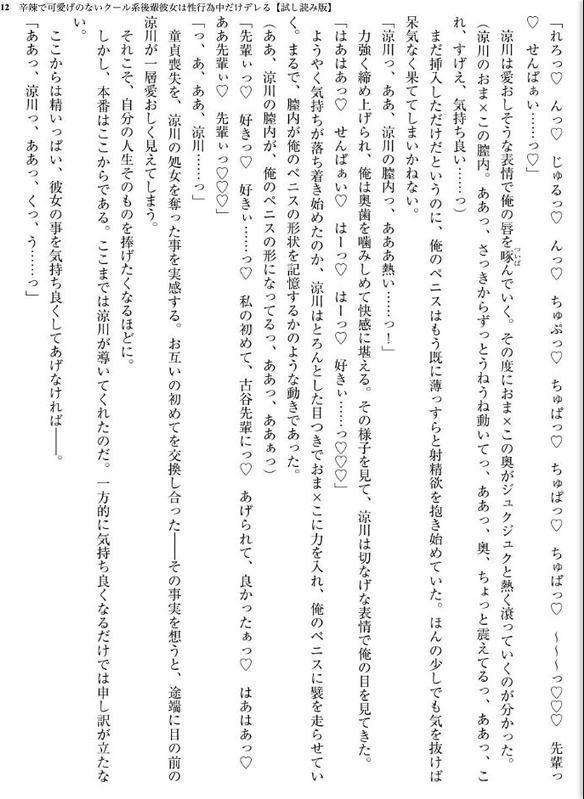 12 辛辣で可愛げのないクール系後輩彼女は性行為中だけデレる【試し読み版】
「れろっ♡　んっ♡　じゅるっ♡　んっ♡　ちゅぷっ♡　ちゅぱっ♡　ちゅぱっ♡　ちゅぱっ♡　～～～っ♡♡♡　先輩っ
♡　せんぱぁい……っ♡」
涼川は愛おしそうな表情で俺の唇を啄んでいく。その度におま×この奥がジュクジュクと熱く滾っていくのが分かった。
つい
ば
（涼川のおま×この膣内。ああっ、さっきからずっとうねうね動いてっ、ああっ、奥、ちょっと震えてるっ、ああっ、こ
れ、すげえ、気持ち良い……っ）
まだ挿入しただけだというのに、俺のペニスはもう既に薄っすらと射精欲を抱き始めていた。ほんの少しでも気を抜けば
呆気なく果ててしまいかねない。
「涼川っ、ああ、涼川の膣内っ、あああ熱い……っ！」
力強く締め上げられ、俺は奥歯を噛みしめて快感に堪える。その様子を見て、涼川は切なげな表情で俺の目を見てきた。
「はあはあっ♡　せんぱぁい♡　はーっ♡　はーっ♡　好きぃ……っ♡♡♡」
ようやく気持ちが落ち着き始めたのか、涼川はとろんとした目つきでおま×こに力を入れ、俺のペニスに襞を走らせてい
く。まるで、膣内が俺のペニスの形状を記憶するかのような動きであった。
（ああ、涼川の膣内が、俺のペニスの形になってるっ、ああっ、ああぁっ）
「先輩ぃっ♡　好きっ♡　好きぃ……っ♡　私の初めて、古谷先輩にっ♡　あげられて、良かったぁっ♡　はあはあっ♡
ああ先輩ぃっ♡　先輩ぃっ♡♡♡」
「っ、あ、ああ、涼川……っ」
童貞喪失を、涼川の処女を奪った事を実感する。お互いの初めてを交換し合った――その事実を想うと、途端に目の前の
涼川が一層愛おしく見えてしまう。
それこそ、自分の人生そのものを捧げたくなるほどに。
しかし、本番はここからである。ここまでは涼川が導いてくれたのだ。一方的に気持ち良くなるだけでは申し訳が立たな
いのだ。
ここからは精いっぱい、彼女の事を気持ち良くしてあげなければ――。
「ああっ、涼川っ、ああっ、くっ、う……っ」